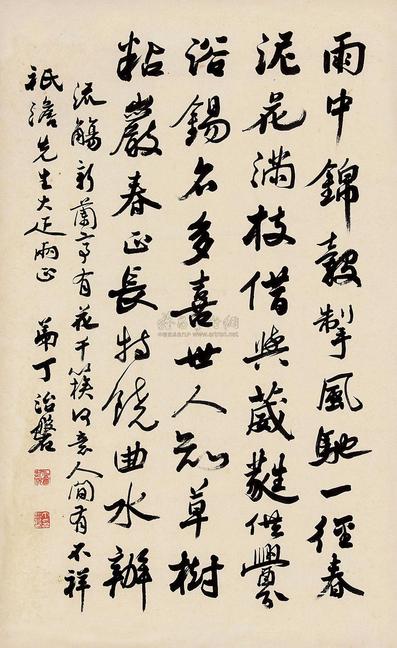 雨中錦縠掣風馳一徑春
泥花滿枝借與葳蕤供釁
浴錫名多喜世人知草樹
粘嚴春正長特饒曲水辦
流觴新蘭亭有花千簇何意人間有不祥
祇澹先生大疋正
弟丁治磐